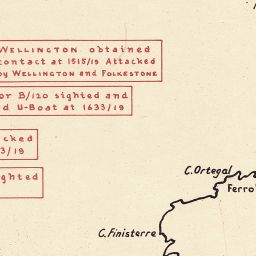 WELLINGTON obtained
contact at 1515/19 Attacked
by WELLINGTON and FOLKESTONE
or B/120 sighted and
d U-Boat at 1633/19
cked
3/19
ighted
C. Ortegal
Ferro
C. Finisterre